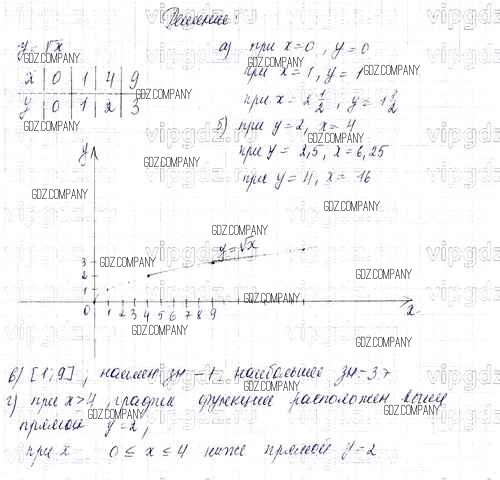 Решение:
y = √x
x 0 1 4 9
y 0 1 2 3
а) при x=0, y=0
при x=1, y=1
при x = 2 1/2, y = 1 1/2
б) при y=2, x=4
при y = 2,5, x=6,25
при y=4, x= 16
y
y=√x
3
2
1
0 1 2 3 4 5 6 7 8 9
x
в) [1; 9], наимен зн – 1, наибольшее зн – 3
г) при x>4, график функции расположен выше
прямой y=2,
при x 0 ≤ x ≤ 4 ниже прямой y=2
GDZ.COMPANY
vipgdz